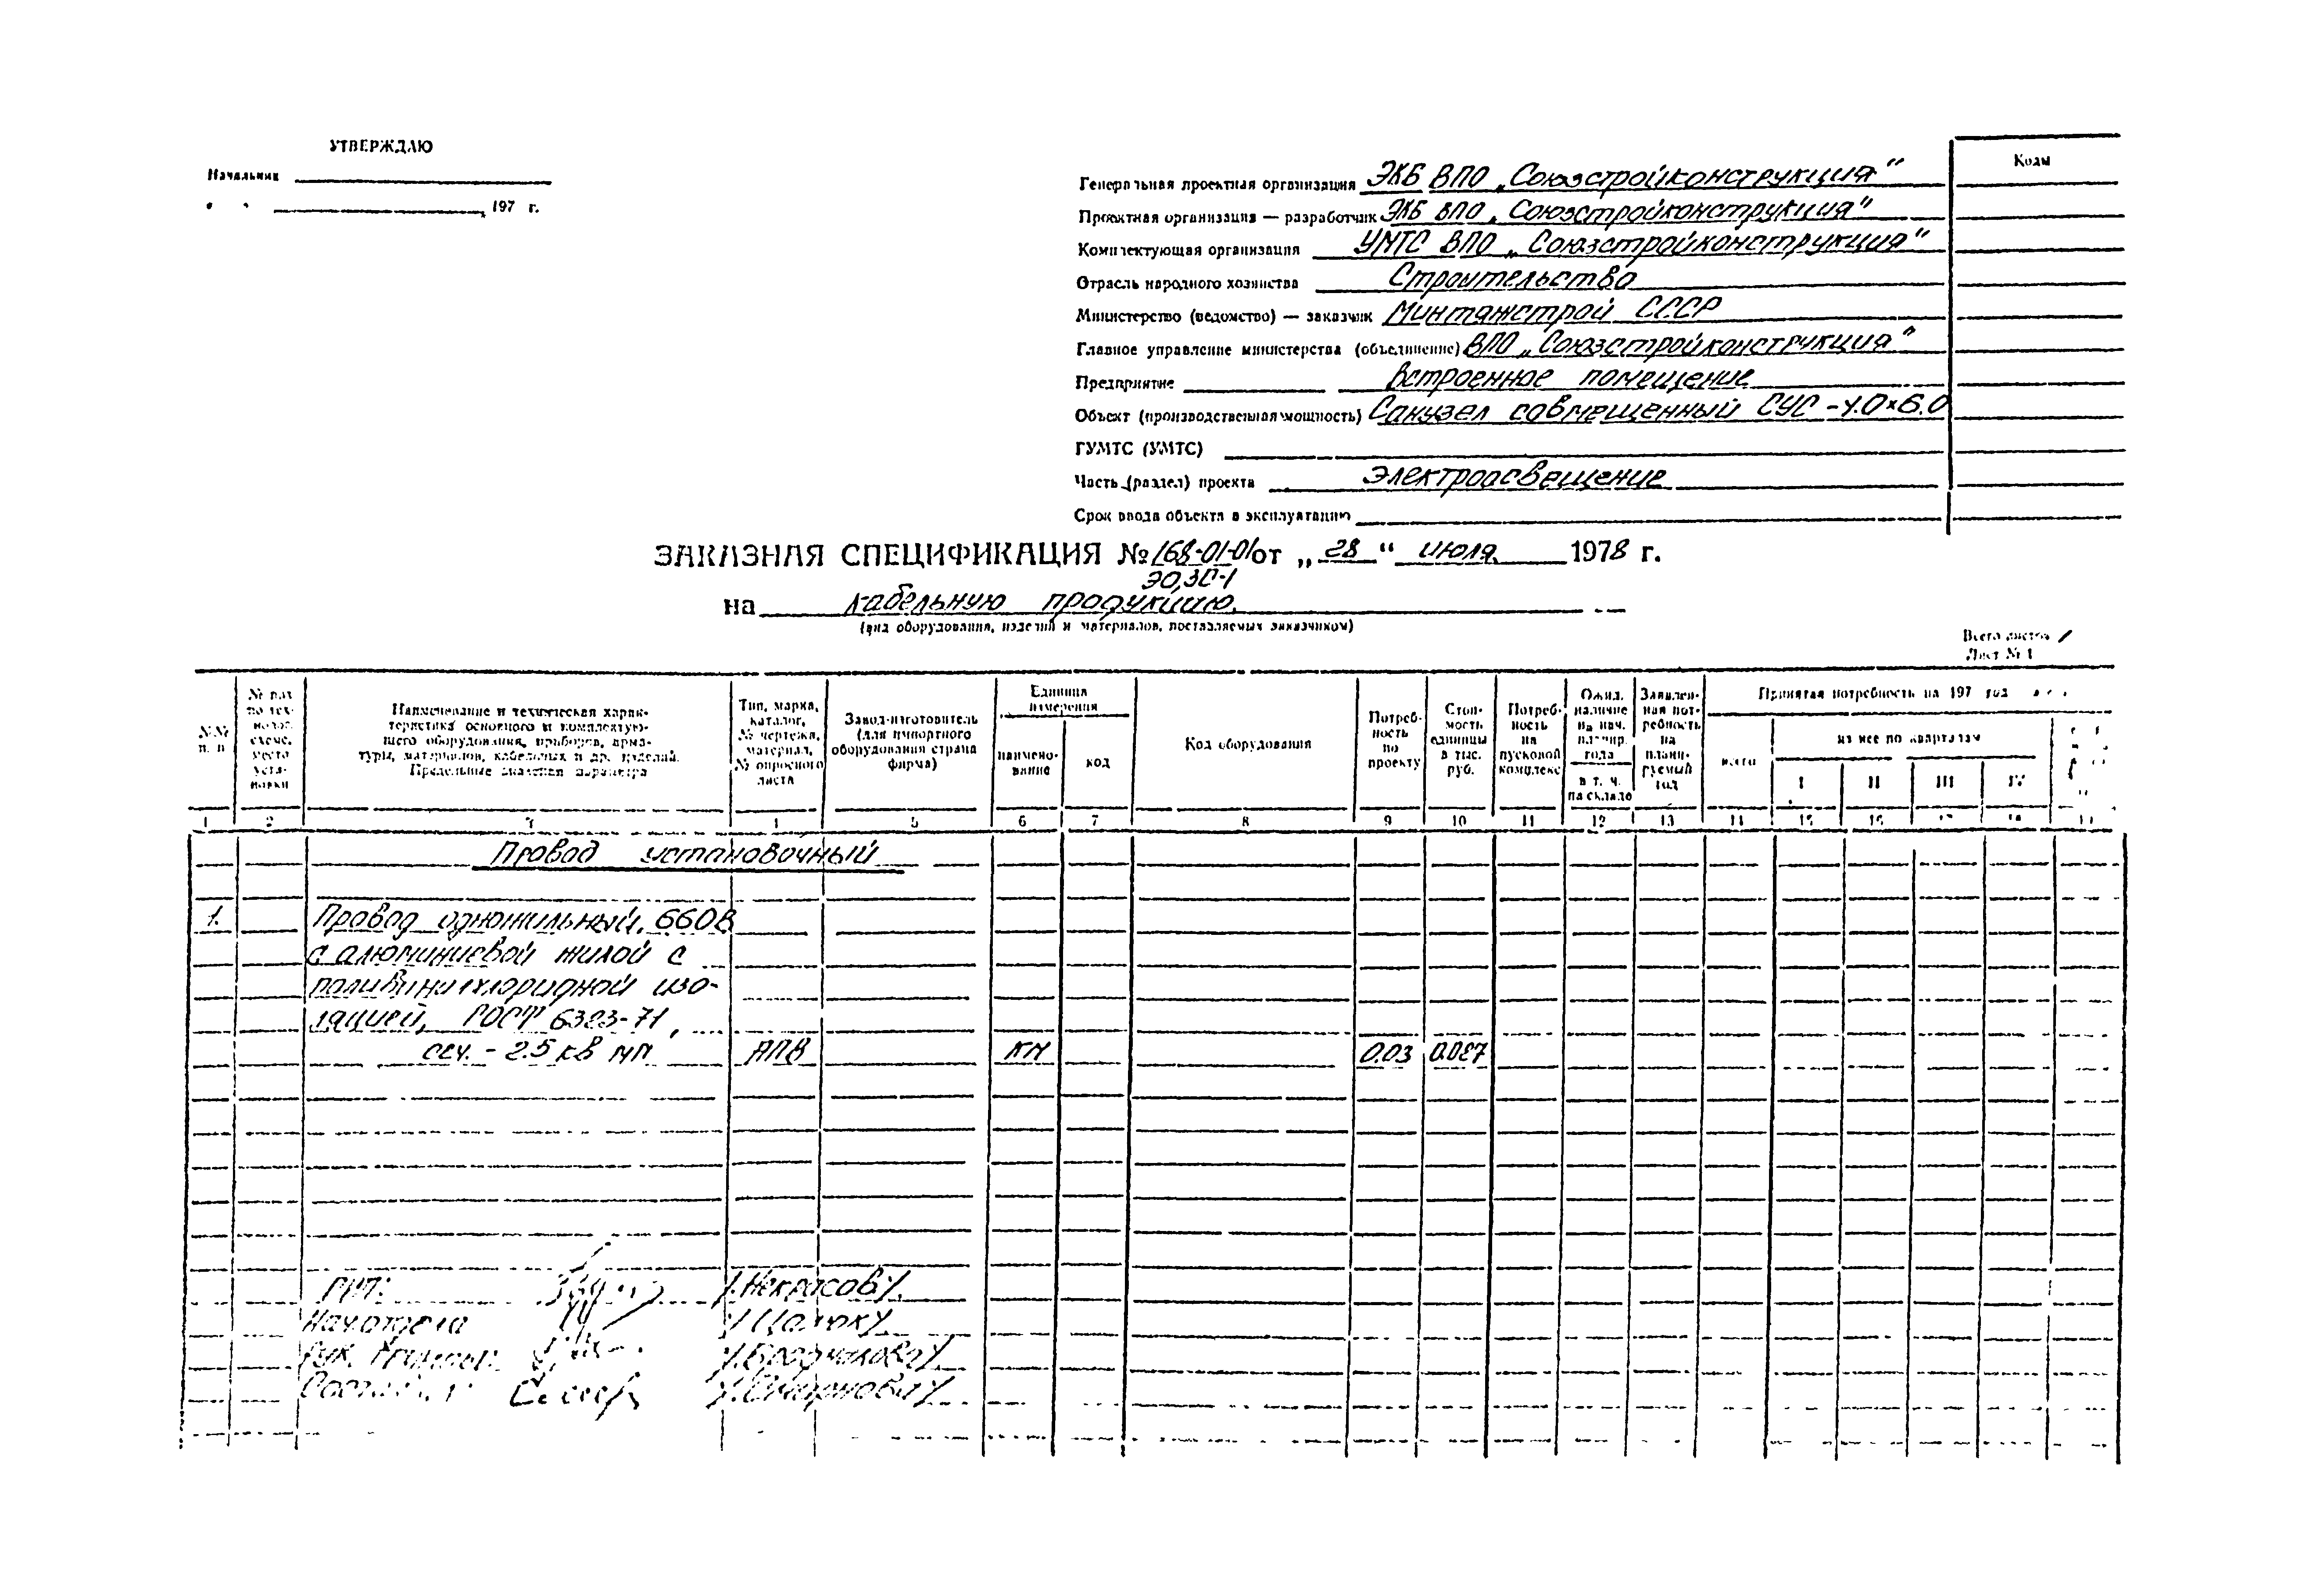 УТВЕРЖДАЮ
Начальник
197 г.
Коды
Генеральная проектная организация ЭКБ ВПО „Союзстройконструкция"
Проектная организация — разработчик ЭКБ ВПО „Союзстройконструкция"
Комплектующая организация УМТС ВПО „Союзстройконструкция"
Отрасль народного хозяйства Строительство
Министерство (ведомство) — заказчик Минтяжстрой СССР
Главное управление министерства (объединение) ВПО „Союзстройконструкция"
Предприятие Встроенное помещение
Объект (производственная мощность) Санузел совмещенный СУС-4.0×6.0
ГУМТС (УМТС)
Часть (раздел) проекта Электроосвещение
Срок ввода объекта в эксплуатацию
ЗАКАЗНАЯ СПЕЦИФИКАЦИЯ № 168-01-01 от „28" июля 1978 г.
ЭО,ЗС-1
на кабельную продукцию.
(вид оборудования, изделий и материалов, поставляемых заказчиком)
Всего листов 1
Лист № 1
№№ п. п
№ поз. по технолог. схеме, место установки
Наименование и техническая характеристика основного и комплектующего оборудования, приборов, арматуры, материалов, кабельных и др. изделий. Предельные значения параметра
Тип, марка, каталог, № чертежа, материал, № опросного листа
Завод-изготовитель (для импортного оборудования страна фирма)
Единица измерения
наименование
код
Код оборудования
Потребность по проекту
Стоимость единицы в тыс. руб.
Потребность на пусковой комплекс
Ожид. наличие на нач. планир. года
в т. ч. на складе
Заявленная потребность на планируемый год
Принятая потребность на 197 год
всего
из нее по кварталам
I II III IV
1 2 3 4 5 6 7 8 9 10 11 12 13 14 15 16 17 18 19
Провод установочный
1. Провод одножильный, 660В
с алюминиевой жилой с
поливинилхлоридной изо-
ляцией, ГОСТ 6323-71,
сеч. - 2.5 кв мм АПВ км 0.03 0.027
ГИП: /.Некрасов/
Нач. отдела /Цалюк/
Рук. группы /.Бродникова/
Состав. /.Смирнова/